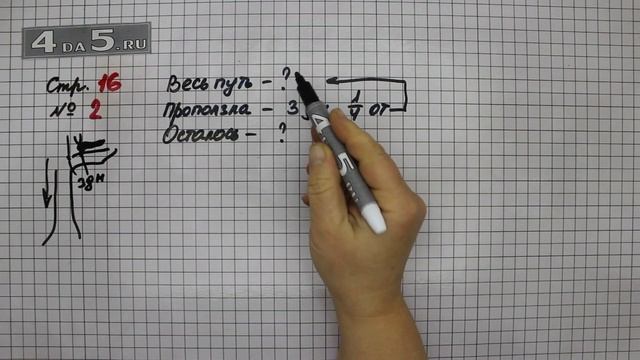 4DA5.RU
Стр. 16
№ 2
Весь путь – ?
Проползла – 3 1/4 от
Осталось – ?
38н
4 5